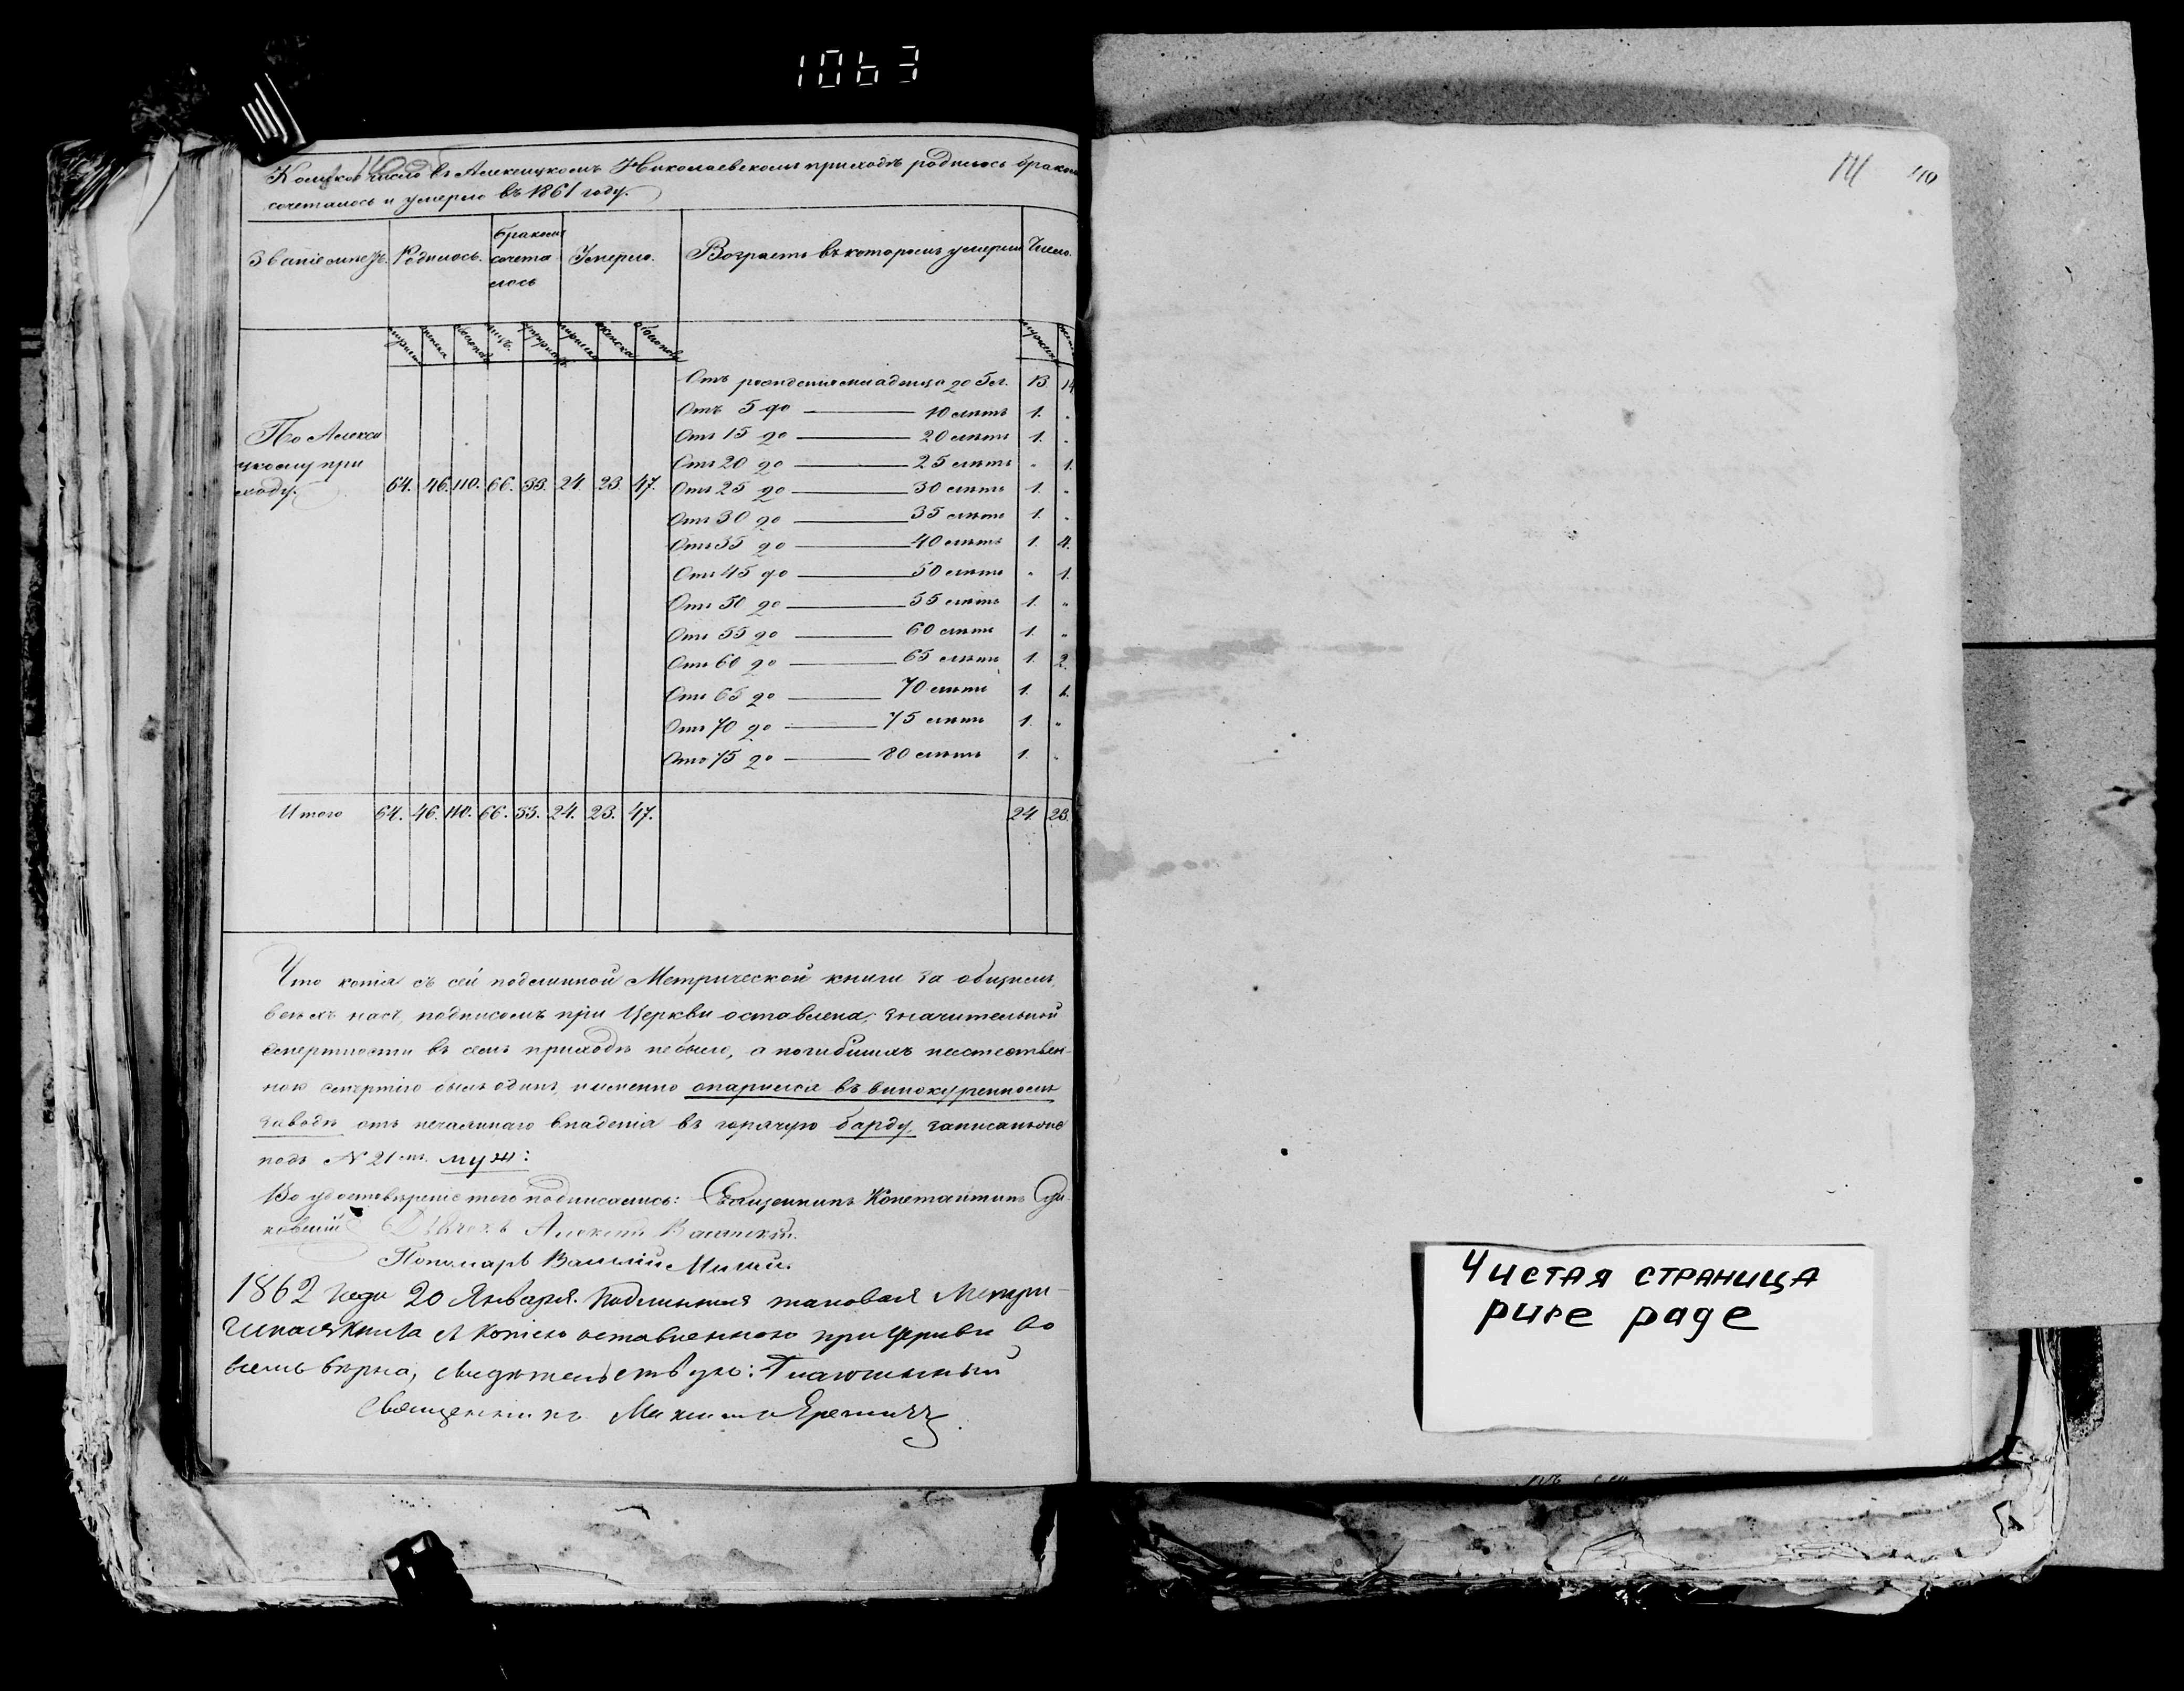 1063
Колико числа въ Алексицкомъ Николаевскомъ приходѣ родилось бракомъ
сочеталось и умерло въ 1861 году.
Званіе мѣстъ. Родилось. бракомъ сочета лось Умерло. Возрастъ въ которомъ умерли Число.
Отъ рожденія младенца до 5 л. 13. 14
Отъ 5 до — 10 лѣтъ 1. „
Отъ 15 до — 20 лѣтъ 1. „
Отъ 20 до — 25 лѣтъ „ 1.
Отъ 25 до — 30 лѣтъ 1. „
Отъ 30 до — 35 лѣтъ 1. „
Отъ 35 до — 40 лѣтъ 1. 4.
Отъ 45 до — 50 лѣтъ „ 1.
Отъ 50 до — 55 лѣтъ 1. „
Отъ 55 до — 60 лѣтъ 1. „
Отъ 60 до — 65 лѣтъ 1. 2.
Отъ 65 до — 70 лѣтъ 1. 1.
Отъ 70 до — 75 лѣтъ 1. „
Отъ 75 до — 80 лѣтъ 1. „
По Алекси
цкому при
ходу. 64. 46. 110. 66. 33. 24. 23. 47.
Итого 64. 46. 110. 66. 33. 24. 23. 47. 24. 23.
Что копія съ сей подлинной Метрической книги за общимъ
всѣхъ насъ, подписомъ при Церкви оставлена; значительной
смертности въ семъ приходѣ небыло, а погибшихъ неестествен-
ною смертію былъ одинъ, именно опарился въ винокуренномъ
заводѣ отъ нечаяннаго впаденія въ горячую барду, записанъ
подъ N 21 мъ. муж:
Во удостовѣреніе того подписались: Священникъ Константинъ
ковскій Дьячекъ Алексѣй
Пономарь Василій
1862 года 20 Января. Подлинная таковая Метри-
ческая книга съ копіею оставленною при Церкви во
всемъ вѣрна, свидѣтельствую: Благочинный
Священникъ
141 110
Чистая страница
pure page